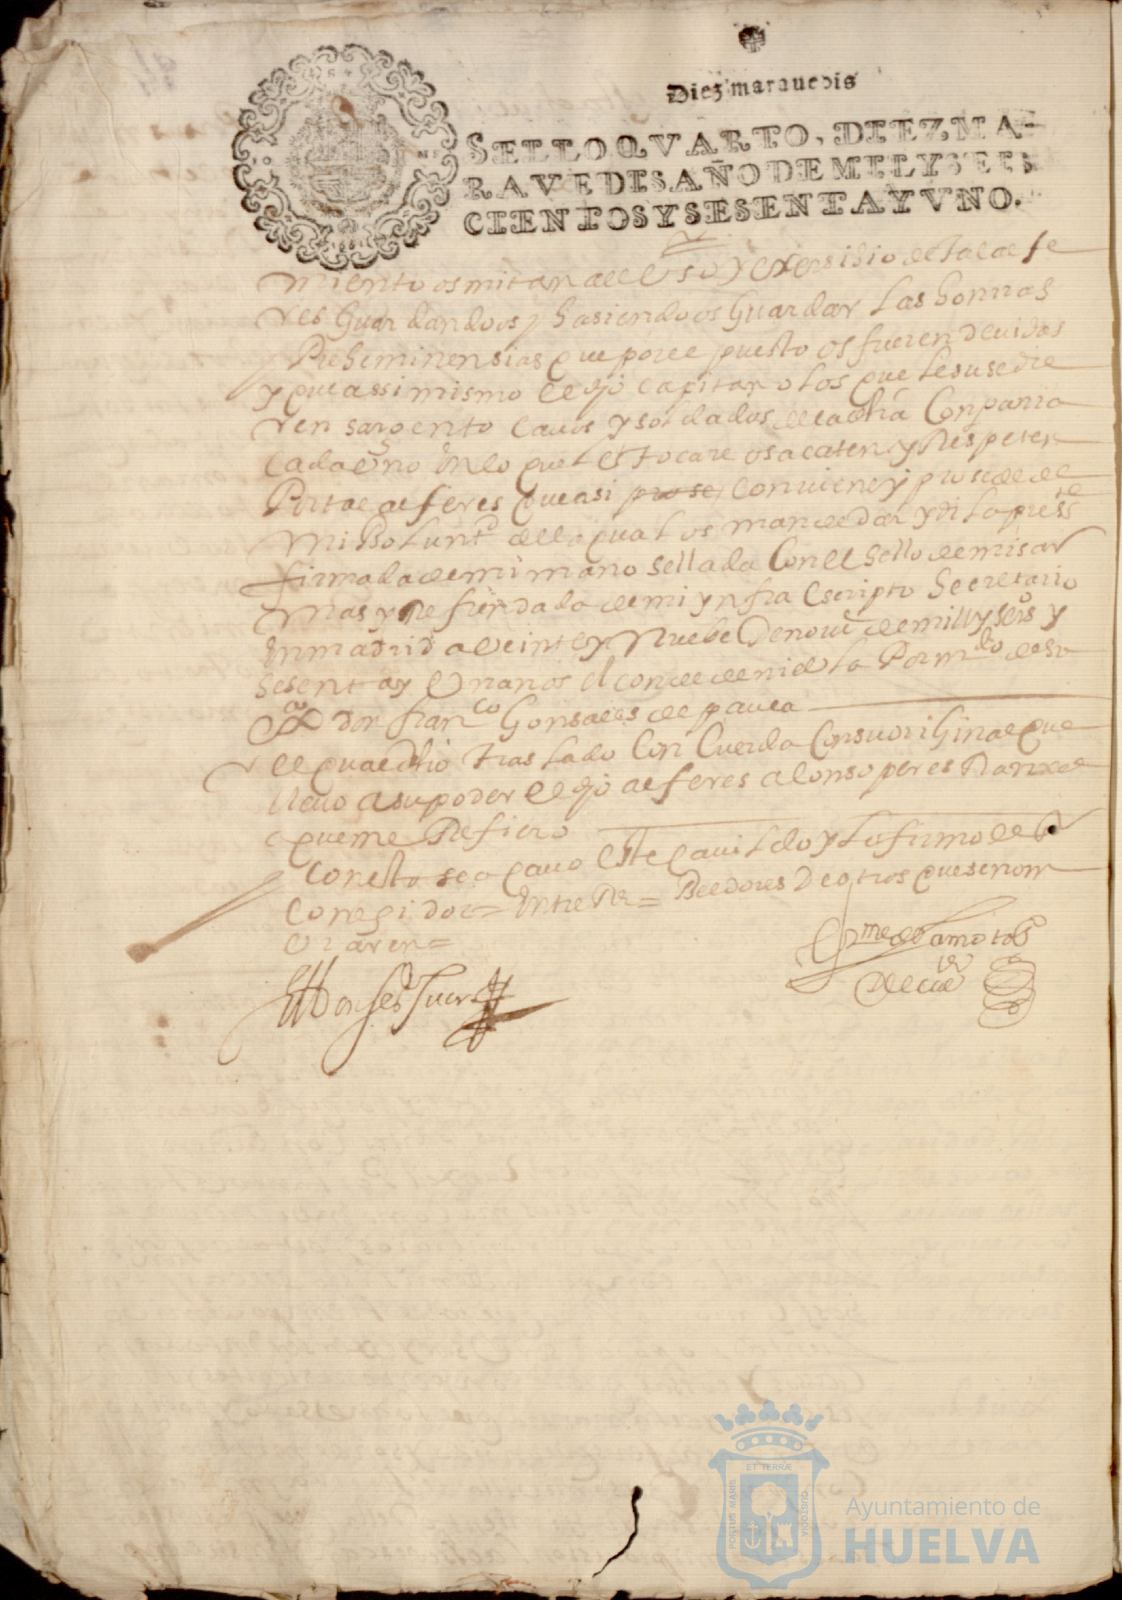 Diez marauedis
SELLO QVARTO, DIEZ MA-
RAVEDIS AÑO DE MIL Y SEIS
CIENTOS Y SESENTA Y VNO.
miento os mitan del uso y exersisio de tal alfe
res Guardandoos y hasiendoos Guardar las honrras
Preheminensias que por el puesto os fueren deuidas
y que assi mismo el dho capitan o los que le susedie
ren sargento cauos y soldados de la dha Conpania
Cada Uno En lo que les tocare os acaten y Respeten
Por tal alferes que asi prose conuiene y prosede de
mi Volunt.d de lo qual os mande dar y di la press.te
firmada de mi mano sellada Con el sello de mis ar
mas y Refrendada de mi ynfra escripto Secretario
En madrid a Veinte y Nuebe De nou.e de mill y seis.o y
Sesenta y Un anos el conde de niebla Por m.do de su
ex.a don fran.co Gonsales de paula
el qual dho traslado Concuerda Con su original que
lleuo a su poder el dho alferes alonso peres
a que me Refiero
Con esto se acauo este cauildo y lo firmo el s.r
Coregidor = Entre R.s = Beedores De otros que se nom
braren =
G.me de Camoto